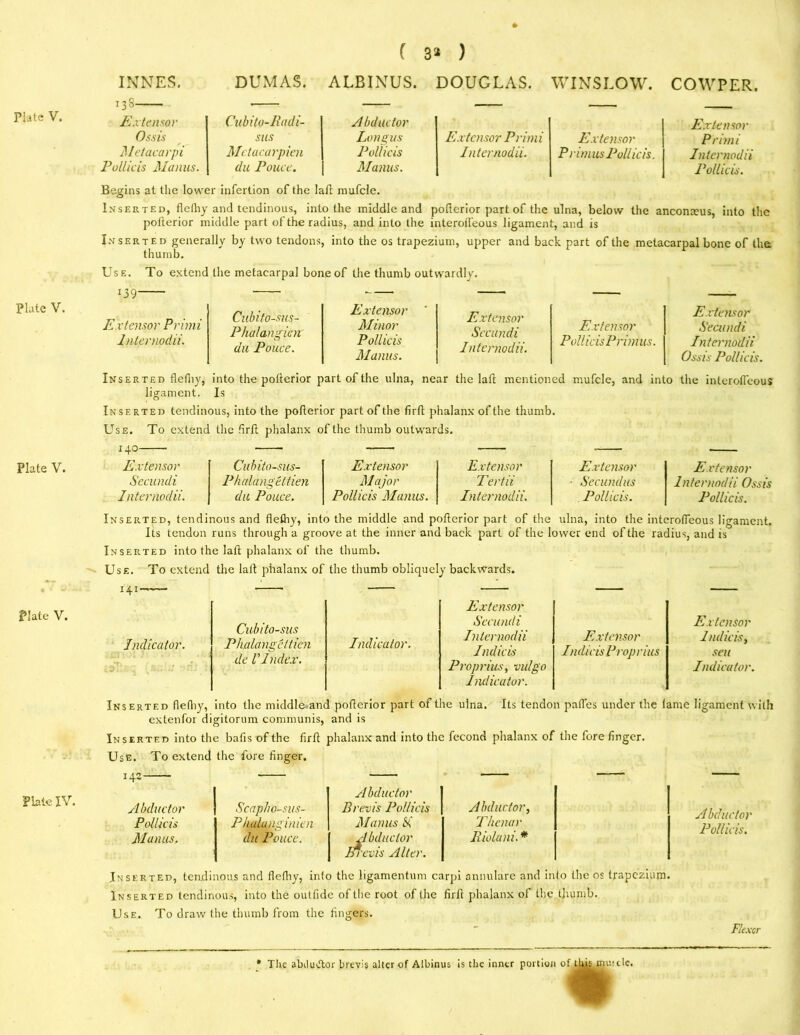 ( 3* )
INNES. DUMAS. ALBINUS. DOUGLAS. WINSLOW. COWPER.
138—— — — — — —
Plate V.
Extensor Ossis Metacarpi Pollicis Manus. | Cubito-Radi-sus Metacarpien du Pouce. | Abductor Longus Pollicis Manus. | Extensor Primi Internodii. | Extensor Primus Pollicis. | Extensor Primi Internodii Pollicis.
Begins at the lower insertion of the last muscle.
INSERTED, fleshy and tendinous, into the middle and posterior part of the ulna, below the anconæus, into the
posterior middle part of the radius, and into the interosseous ligament, and is
INSERTED generally by two tendons, into the os trapezium, upper and back part of the metacarpal bone of the
thumb.
USE. To extend the metacarpal bone of the thumb outwardly.
139—— — — — — —
Plate V.
Extensor Primi Internodii. | Cubito-sus-Phalangien du Pouce. | Extensor Minor Pollicis Manus. | Extensor Secundi Internodii. | Extensor Pollicis Primus. | Extensor Secundi Internodii Ossis Pollicis.
INSERTED fleshy, into the posterior part of the ulna, near the last mentioned muscle, and into the interosseous
ligament. Is
INSERTED tendinous, into the posterior part of the first phalanx of the thumb.
USE. To extend the first phalanx of the thumb outwards.
140—— — — — — —
Plate V.
Extensor Secundi Internodii. | Cubito-sus-Phalangêttien du Pouce. | Extensor Major Pollicis Manus. | Extensor Tertii Internodii. | Extensor Secundus Pollicis. | Extensor Internodii Ossis Pollicis.
INSERTED, tendinous and fleshy, into the middle and posterior part of the ulna, into the interosseous ligament.
Its tendon runs through a groove at the inner and back part of the lower end of the radius, and is
INSERTED into the last phalanx of the thumb.
USE. To extend the last phalanx of the thumb obliquely backwards.
141—— — — — — —
Plate V.
Indicator. | Cubito-sus Phalangêttien de l'Index. | Indicator. | Extensor Secundi Internodii Indicis Proprius, vulgo Indicator. | Extensor Indicis Proprius | Extensor Indicis, seu Indicator.
INSERTED fleshy, into the middle and posterior part of the ulna. Its tendon passes under the same ligament with
extensor digitorum communis, and is
INSERTED into the basis of the first phalanx and into the second phalanx of the fore finger.
USE. To extend the fore finger.
142—— — — — — —
Plate IV.
Abductor Pollicis Manus. | Scapho-sus-Phalanginien du Pouce. | Abductor Brevis Pollicis Manus & Abductor Brevis Alter. | Abductor, Thenar Riolani.* | | Abductor Pollicis.
INSERTED, tendinous and fleshy, into the ligamentum carpi annulare and into the os trapezium.
INSERTED tendinous, into the outside of the root of the first phalanx of the thumb.
USE. To draw the thumb from the fingers.
Flexor
* The abductor brevis alter of Albinus is the inner portion of this muscle.